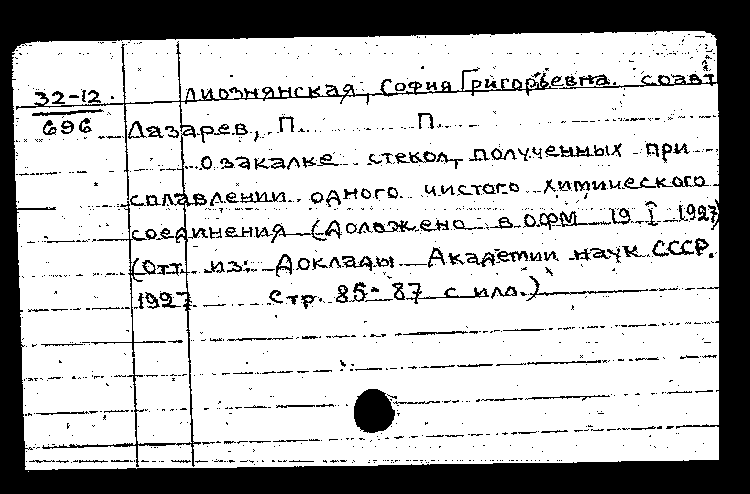 32-12
696
Лиознянская, София Григорьевна. соавт
Лазарев, П. П.
О закалке стекол, полученных при
сплавлении одного чистого химического
соединения (Доложено в ОФМ 19 I 1927)
(Отт из: Доклады Академии наук СССР.
1927 Стр. 85-87 с илл.)